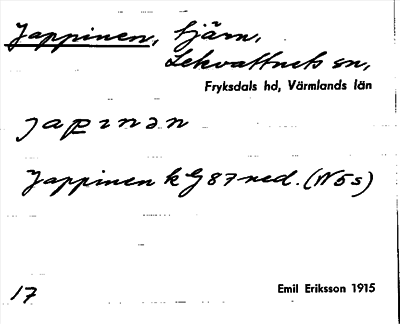 Jappinen, tjärn,
Lekvattnets sn,
Fryksdals hd, Värmlands län
Japinən
Jappinen k G 87 ned. (N 5 s)
17
Emil Eriksson 1915